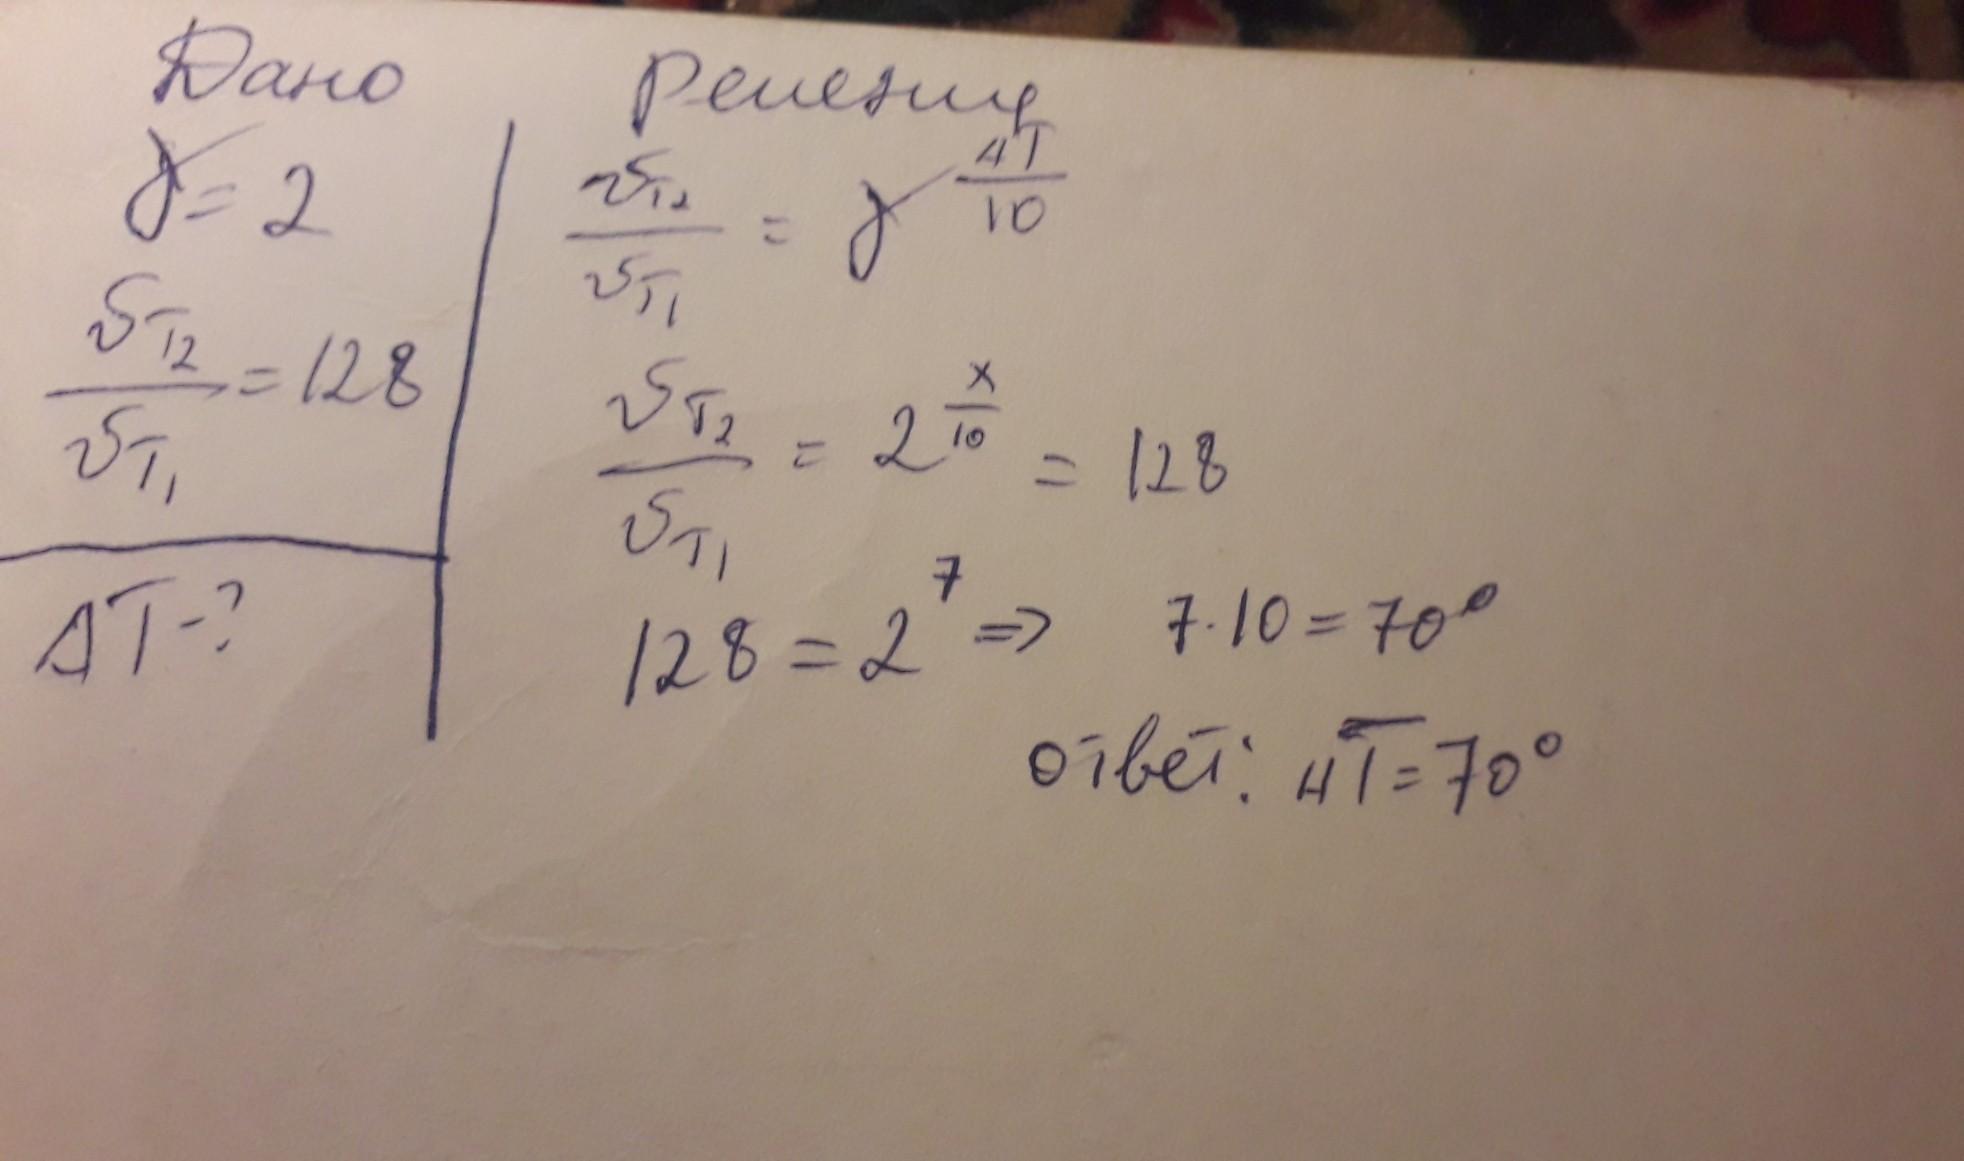 Дано
γ = 2
υT2 / υT1 = 128
ΔT - ?
Решение
υT2 / υT1 = γ^(ΔT/10)
υT2 / υT1 = 2^(x/10) = 128
128 = 2^7 ⇒ 7·10 = 70°
ответ: ΔT = 70°